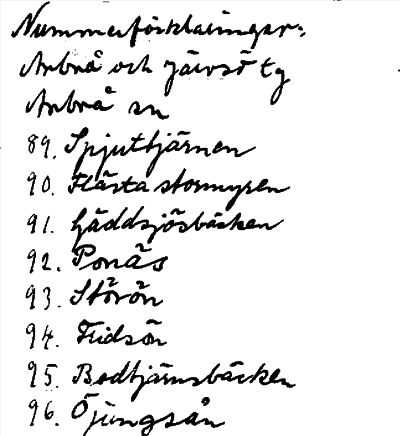 Nummerförklaringar:
Arbrå och Järvsö tg
Arbrå sn
89. Spjuttjärnen
90. Flästa stormyren
91. Gäddsjösbäcken
92. Ponäs
93. Störön
94. Fridsön
95. Bodtjärnsbäcken
96. Öjungsån